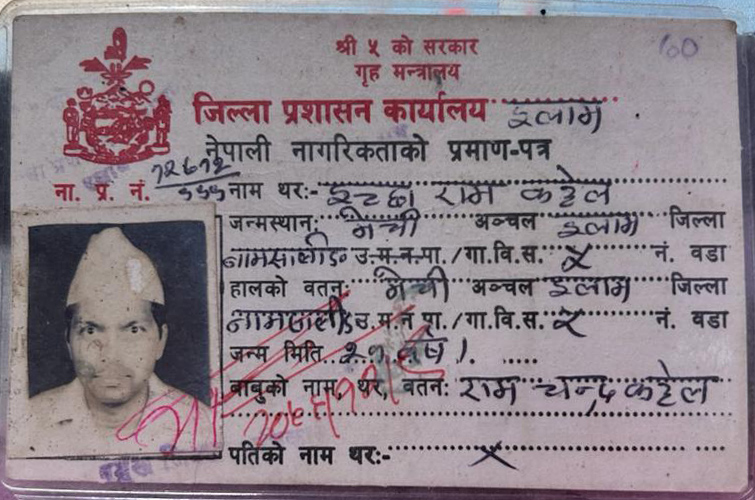 ६०
श्री ५ को सरकार
गृह मन्त्रालय
जिल्ला प्रशासन कार्यालय इलाम
नेपाली नागरिकताको प्रमाण-पत्र
ना. प्र. नं.
नाम थर:- इच्छा राम कट्टेल
जन्मस्थान: मेची अञ्चल इलाम जिल्ला
नामसालीङ उ.म.न.पा./गा.वि.स. ५ नं. वडा
हालको वतन: मेची अञ्चल इलाम जिल्ला
नामसालीङ उ.म.न.पा./गा.वि.स. ५ नं. वडा
जन्म मिति २१ वर्ष ।
बाबुको नाम, थर, वतन: राम चन्द्र कट्टेल
पतिको नाम थर:- ×